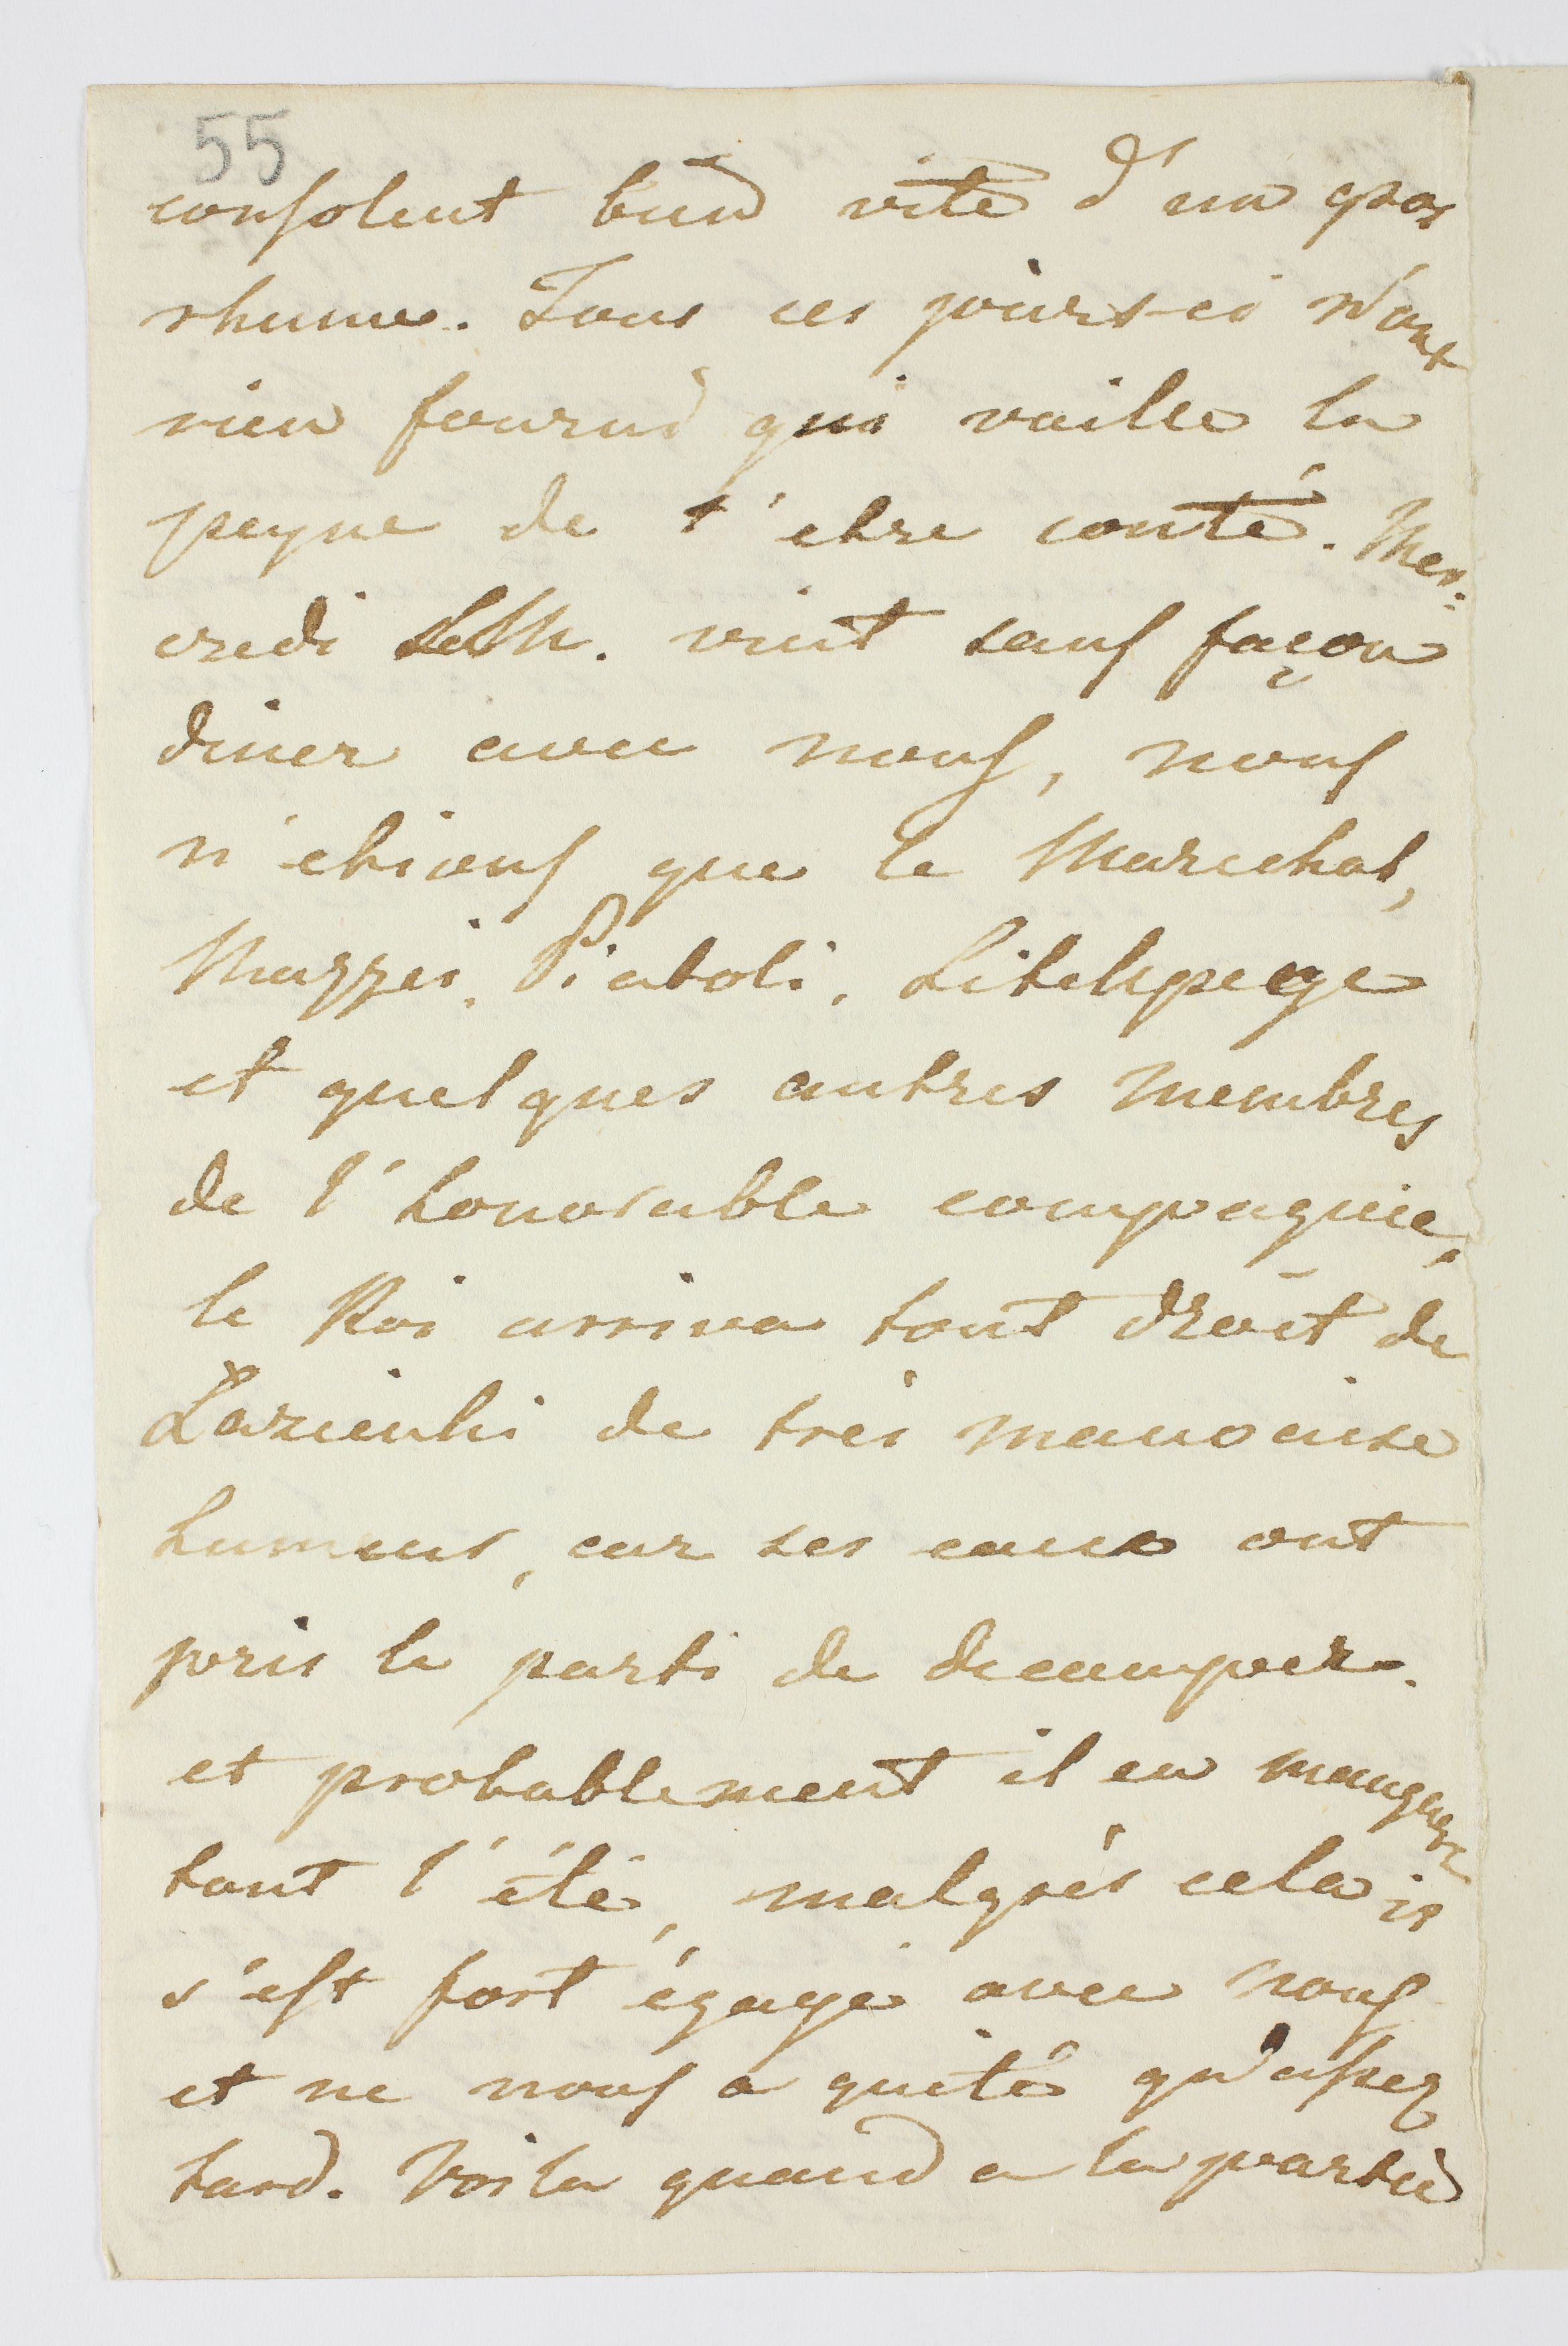 55
consolent bien vite d'un gros
rhume. Tous ces jours-ci n'ont
rien fourni qui vaille la
peyne de t'etre conté. Mer-
credi le M. vint sans façon
diner avec nous, nous
n'etions que le Marechal,
Mazzei, Piatoli, Litelpege
et quelques autres membres
de l'honorable compagnie,
le Roi arriva tout droit de
Łazienki de tres mauvaise
humeur, car ses eaux ont
pris le parti de decamper.
et probablement il en manquera
tout l'été, malgrés cela il
s'est fort égayé avec nous
et ne nous a quité qu'assez
tard. Voila quand a la partie